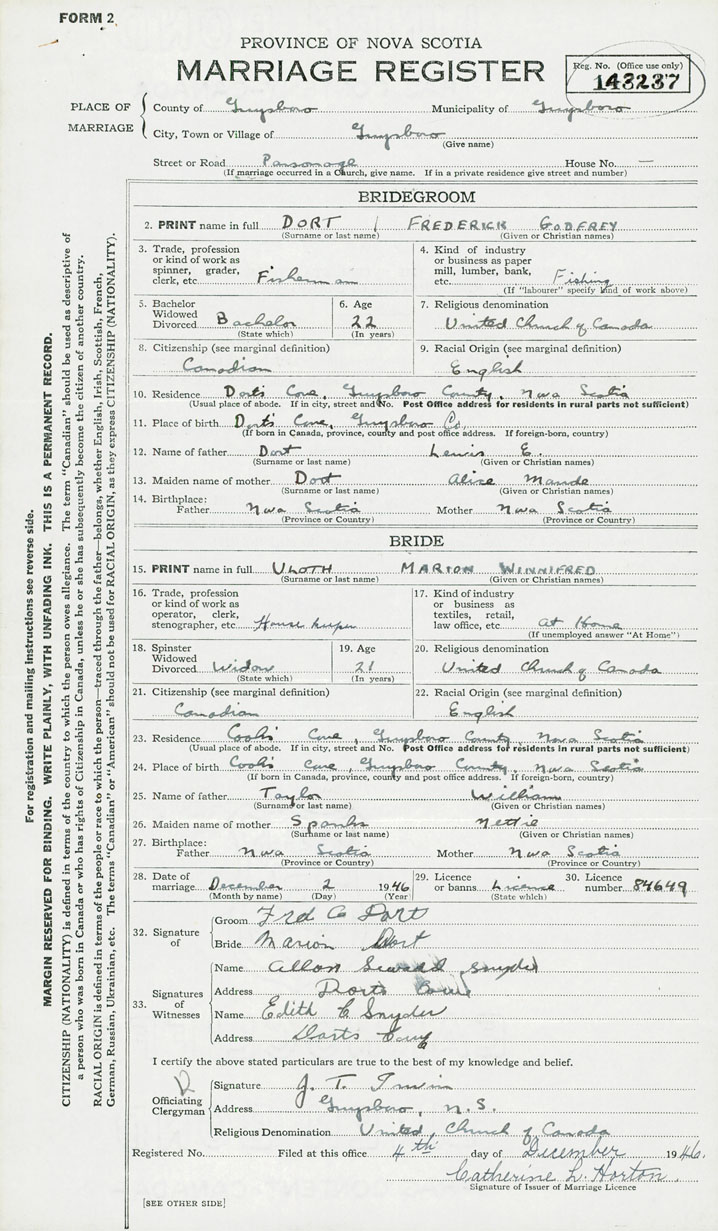 FORM 2
PROVINCE OF NOVA SCOTIA
MARRIAGE REGISTER
Reg. No. (Office use only)
143237
PLACE OF MARRIAGE
County of Guysboro Municipality of Guysboro
City, Town or Village of Guysboro
(Give name)
Street or Road Parsonage House No. —
(If marriage occurred in a Church, give name. If in a private residence give street and number)
BRIDEGROOM
2. PRINT name in full DORT / FREDERICK GODFREY
(Surname or last name) (Given or Christian names)
3. Trade, profession or kind of work as spinner, grader, clerk, etc. Fisherman
4. Kind of industry or business as paper mill, lumber, bank, etc. Fishing
(If "labourer" specify kind of work above)
5. Bachelor Widowed Divorced Bachelor
(State which)
6. Age 22
(In years)
7. Religious denomination
United Church of Canada
8. Citizenship (see marginal definition)
Canadian
9. Racial Origin (see marginal definition)
English
10. Residence Dort's Cove, Guysboro County, Nova Scotia
(Usual place of abode. If in city, street and No. Post Office address for residents in rural parts not sufficient)
11. Place of birth Dort's Cove, Guysboro Co.
(If born in Canada, province, county and post office address. If foreign-born, country)
12. Name of father Dort Lewis E.
(Surname or last name) (Given or Christian names)
13. Maiden name of mother Dort Alice Maude
(Surname or last name) (Given or Christian names)
14. Birthplace:
Father Nova Scotia Mother Nova Scotia
(Province or Country) (Province or Country)
BRIDE
15. PRINT name in full ULOTH MARION WINNIFRED
(Surname or last name) (Given or Christian names)
16. Trade, profession or kind of work as operator, clerk, stenographer, etc. House keeper
17. Kind of industry or business as textiles, retail, law office, etc. At Home
(If unemployed answer "At Home")
18. Spinster Widowed Divorced Widow
(State which)
19. Age 21
(In years)
20. Religious denomination
United Church of Canada
21. Citizenship (see marginal definition)
Canadian
22. Racial Origin (see marginal definition)
English
23. Residence Cook's Cove, Guysboro County, Nova Scotia
(Usual place of abode. If in city, street and No. Post Office address for residents in rural parts not sufficient)
24. Place of birth Cook's Cove, Guysboro County, Nova Scotia
(If born in Canada, province, county and post office address. If foreign-born, country)
25. Name of father Taylor William
(Surname or last name) (Given or Christian names)
26. Maiden name of mother Spanks Nettie
(Surname or last name) (Given or Christian names)
27. Birthplace:
Father Nova Scotia Mother Nova Scotia
(Province or Country) (Province or Country)
28. Date of marriage December 2 1946
(Month by name) (Day) (Year)
29. Licence or banns License
(State which)
30. Licence number 84649
32. Signature of
Groom Fred G Dort
Bride Marion Dort
33. Signatures of Witnesses
Name Snyder
Address Dorts Cove
Name Edith C Snyder
Address Dorts
I certify the above stated particulars are true to the best of my knowledge and belief.
Officiating Clergyman
Signature J. T. Irwin
Address Guysboro, N.S.
Religious Denomination United Church of Canada
Registered No. Filed at this office 4th day of December 1946.
Catherine L. Horton
Signature of Issuer of Marriage Licence
[SEE OTHER SIDE]
For registration and mailing instructions see reverse side.
MARGIN RESERVED FOR BINDING. WRITE PLAINLY, WITH UNFADING INK. THIS IS A PERMANENT RECORD.
CITIZENSHIP (NATIONALITY) is defined in terms of the country to which the person owes allegiance. The term "Canadian" should be used as descriptive of
a person who was born in Canada or who has rights of Citizenship in Canada, unless he or she has subsequently become the citizen of another country.
RACIAL ORIGIN is defined in terms of the people or race to which the person—traced through the father—belongs, whether English, Irish, Scottish, French,
German, Russian, Ukrainian, etc. The terms "Canadian" or "American" should not be used for RACIAL ORIGIN, as they express CITIZENSHIP (NATIONALITY).